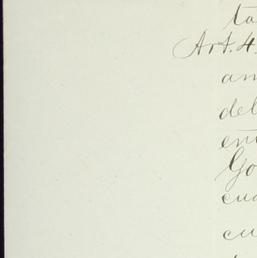 to
Art. 4.
an
del
en
Go
cua
cu